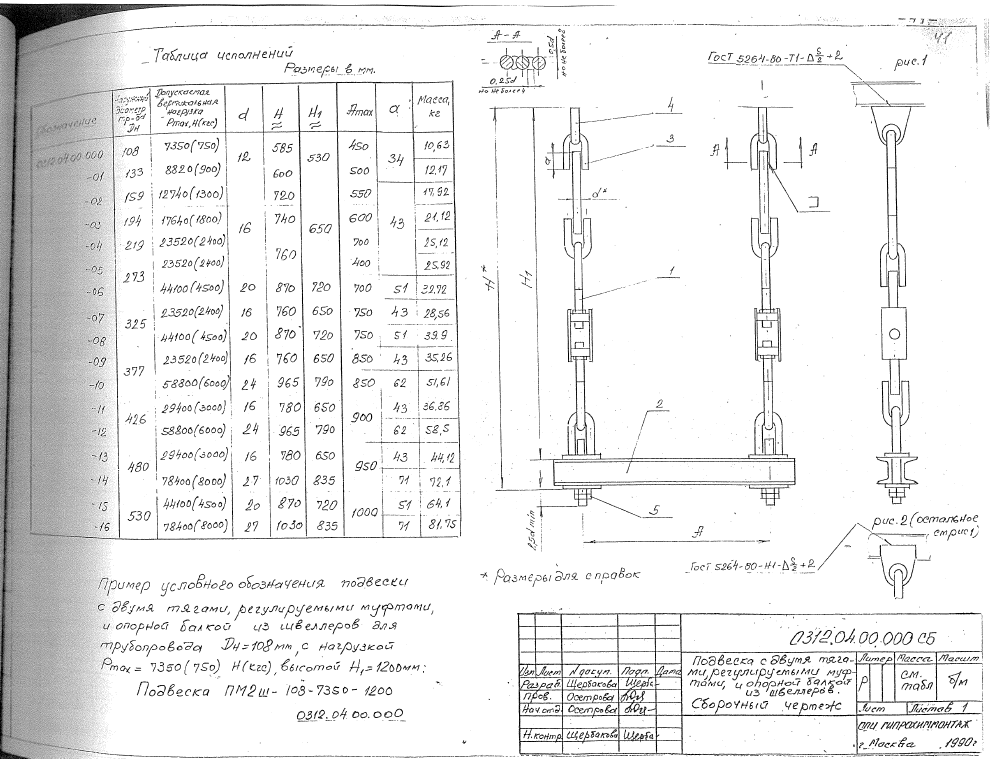 41
Таблица исполнений
Размеры в мм.
Обозначение | Наружный диаметр тр-да Dн | Допускаемая вертикальная нагрузка Pmax, Н(кгс) | d | H ≈ | H1 ≈ | Amax | a | Масса, кг
0312.04.00.000 | 108 | 7350(750) | 12 | 585 | 530 | 450 | 34 | 10,63
-01 | 133 | 8820(900) | 600 | 500 | 12,17
-02 | 159 | 12740(1300) | 16 | 720 | 650 | 550 | 43 | 17,92
-03 | 194 | 17640(1800) | 740 | 600 | 21,12
-04 | 219 | 23520(2400) | 760 | 700 | 25,12
-05 | 273 | 23520(2400) | 400 | 25,92
-06 | 44100(4500) | 20 | 870 | 720 | 700 | 51 | 32,72
-07 | 325 | 23520(2400) | 16 | 760 | 650 | 750 | 43 | 28,56
-08 | 44100(4500) | 20 | 870 | 720 | 750 | 51 | 39.9
-09 | 377 | 23520(2400) | 16 | 760 | 650 | 850 | 43 | 35,26
-10 | 58800(6000) | 24 | 965 | 790 | 850 | 62 | 51,61
-11 | 426 | 29400(3000) | 16 | 780 | 650 | 900 | 43 | 36,86
-12 | 58800(6000) | 24 | 965 | 790 | 62 | 58,5
-13 | 480 | 29400(3000) | 16 | 780 | 650 | 950 | 43 | 44,12
-14 | 78400(8000) | 27 | 1030 | 835 | 71 | 72,1
-15 | 530 | 44100(4500) | 20 | 870 | 720 | 1000 | 51 | 64,1
-16 | 78400(8000) | 27 | 1030 | 835 | 71 | 81,75
Пример условного обозначения подвески
с двумя тягами, регулируемыми муфтами,
и опорной балкой из швеллеров для
трубопровода Dн=108мм, с нагрузкой
Pmax = 7350(750) Н(кгс), высотой H1=1200мм:
Подвеска ПМ2ш-108-7350-1200
0312.04.00.000
А-А
0,5d
не более
0,25d
не более
ГОСТ 5264-80-Т1-
рис.1
4
3
А
А
а
d*
H*
H1
1
2
5
1,5d min
А
* Размеры для справок
рис.2 (остальное
см рис1)
ГОСТ 5264-80-Н1-
0312.04.00.000 СБ
Подвеска с двумя тяга-
ми, регулируемыми муф-
тами, и опорной балкой
из швеллеров.
Сборочный чертеж
Литер | Масса | Масшт
Р | см. табл | б/м
Лист | Листов 1
Изм Лист | N докум. | Подп. | Дата
Разраб. | Щербакова
Пров. | Осетрова
Нач отд. | Осетрова
Н.контр. | Щербакова
СПКИ ГИПРОХИММОНТАЖ
г. Москва 1990г